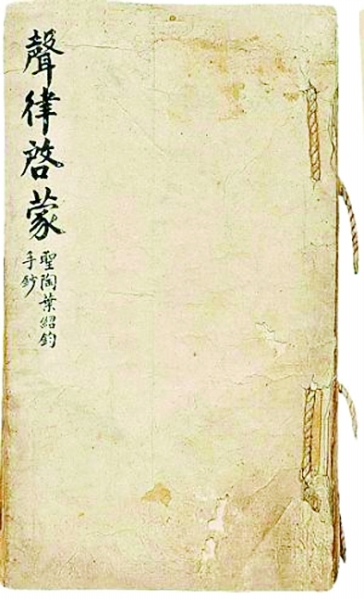 聲律啓蒙
聖陶葉紹鈞
手鈔